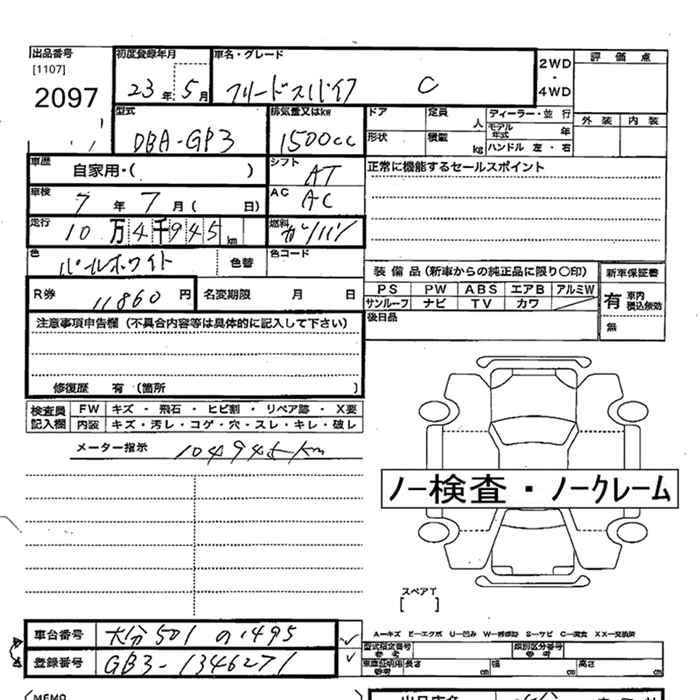 出品番号
[1107]
2097
初度登録年月
23年 5月
車名・グレード
フリードスパイク C
2WD・4WD
評価点
外装 内装
型式
DBA-GP3
排気量又はkw
1500cc
ドア 定員 人
形状 積載 kg
ディーラー・並行
モデル年式 年
ハンドル 左・右
車歴
自家用・( )
シフト
AT
正常に機能するセールスポイント
車検
7年 7月( 日)
AC
AC
走行
10万4千945km
燃料
ガソリン
色
パールホワイト
色替
色コード
装備品(新車からの純正品に限り○印)
新車保証書
PS PW ABS エアB アルミW
サンルーフ ナビ TV カワ
有 車内積込無効
無
R券 11860円
名変期限 月 日
後日品
注意事項申告欄(不具合内容等は具体的に記入して下さい)
修復歴 有(箇所 )
検査員記入欄
FW キズ・飛石・ヒビ割・リペア跡・X要
内装 キズ・汚レ・コゲ・穴・スレ・キレ・破レ
メーター指示 104945km
ノー検査・ノークレーム
スペアT
[ ]
車台番号 大分501 の1495
登録番号 GB3-1346271
A−キズ E−エクボ U−凹み W−補修跡 S−サビ C−腐食 XX−交換済
型式指定番号 参考
類別区分番号 参考
車庫証明用 参考 長さ cm 幅 cm 高さ cm
MEMO
出品店名